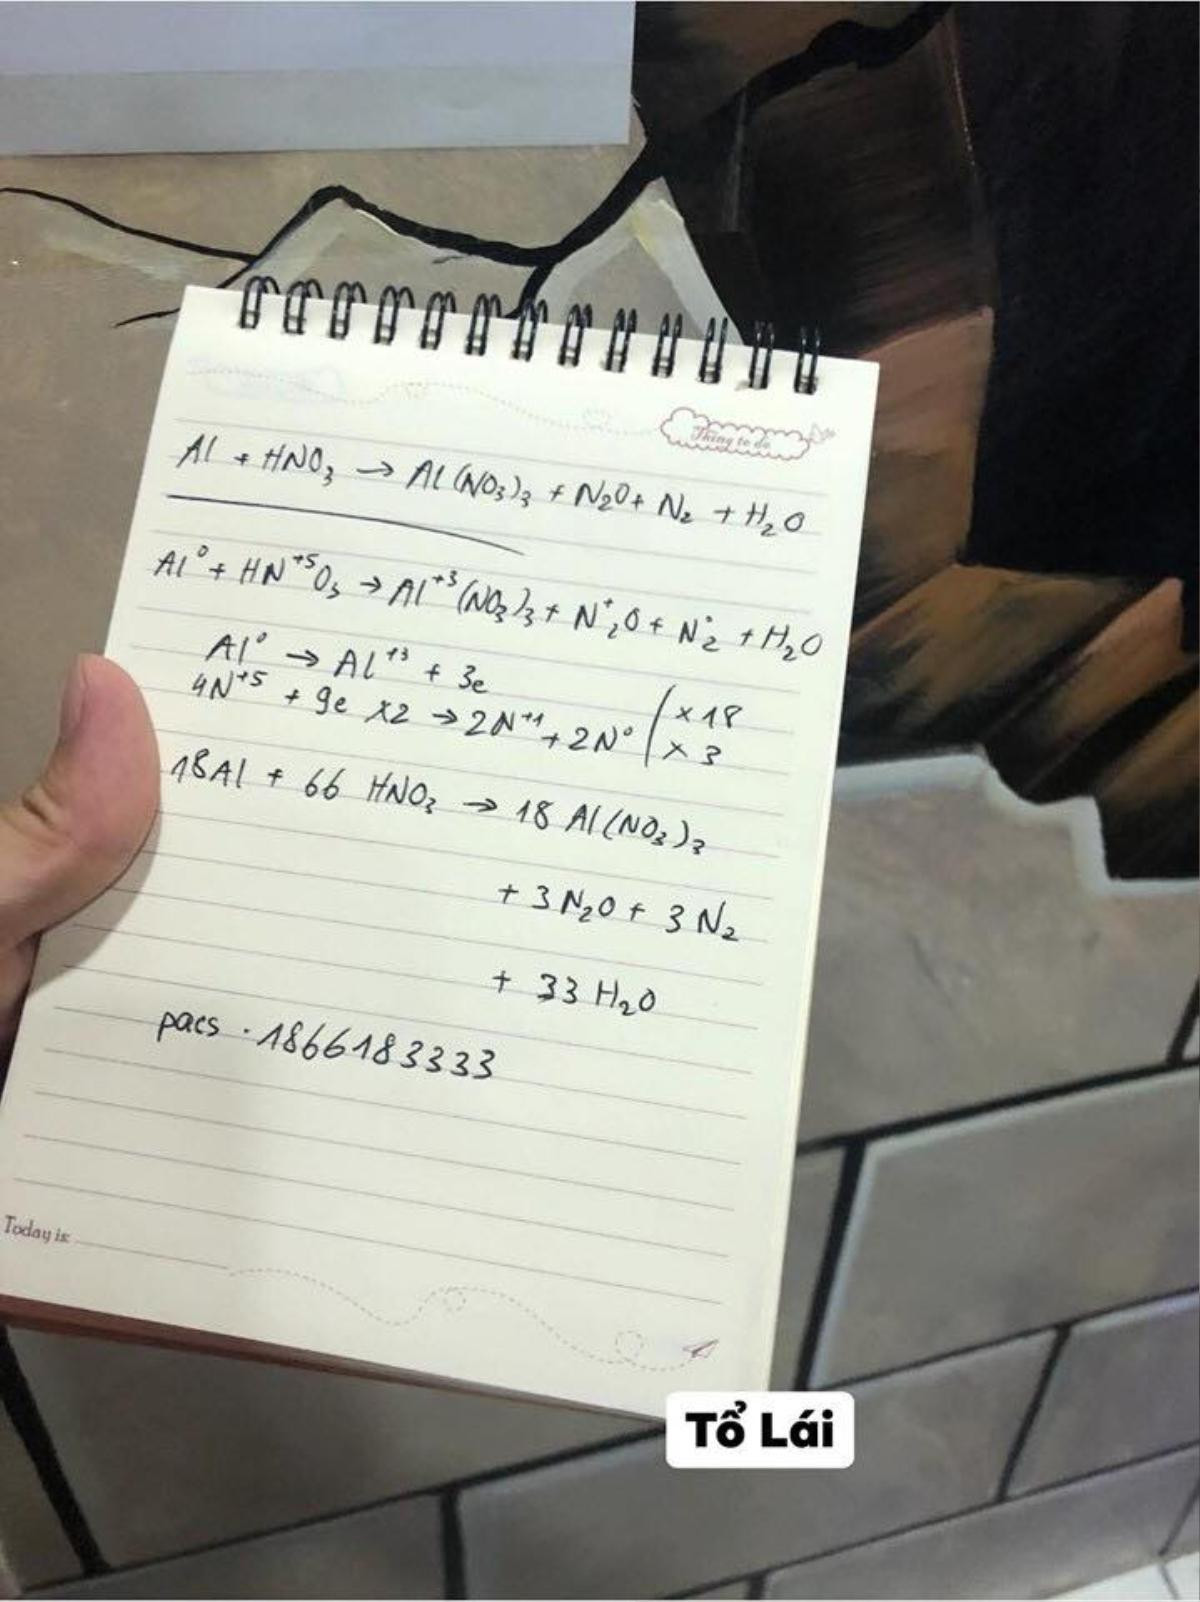 Thing to do
Al + HNO₃ → Al(NO₃)₃ + N₂O + N₂ + H₂O
Al⁰ + HN⁺⁵O₃ → Al⁺³(NO₃)₃ + N⁺₂O + N°₂ + H₂O
Al⁰ → Al⁺³ + 3e | ×18
4N⁺⁵ + 9e ×2 → 2N⁺¹ + 2N⁰ | ×3
18Al + 66 HNO₃ → 18 Al(NO₃)₃
+ 3N₂O + 3N₂
+ 33 H₂O
pacs . 1866183333
Today is:
Tổ Lái